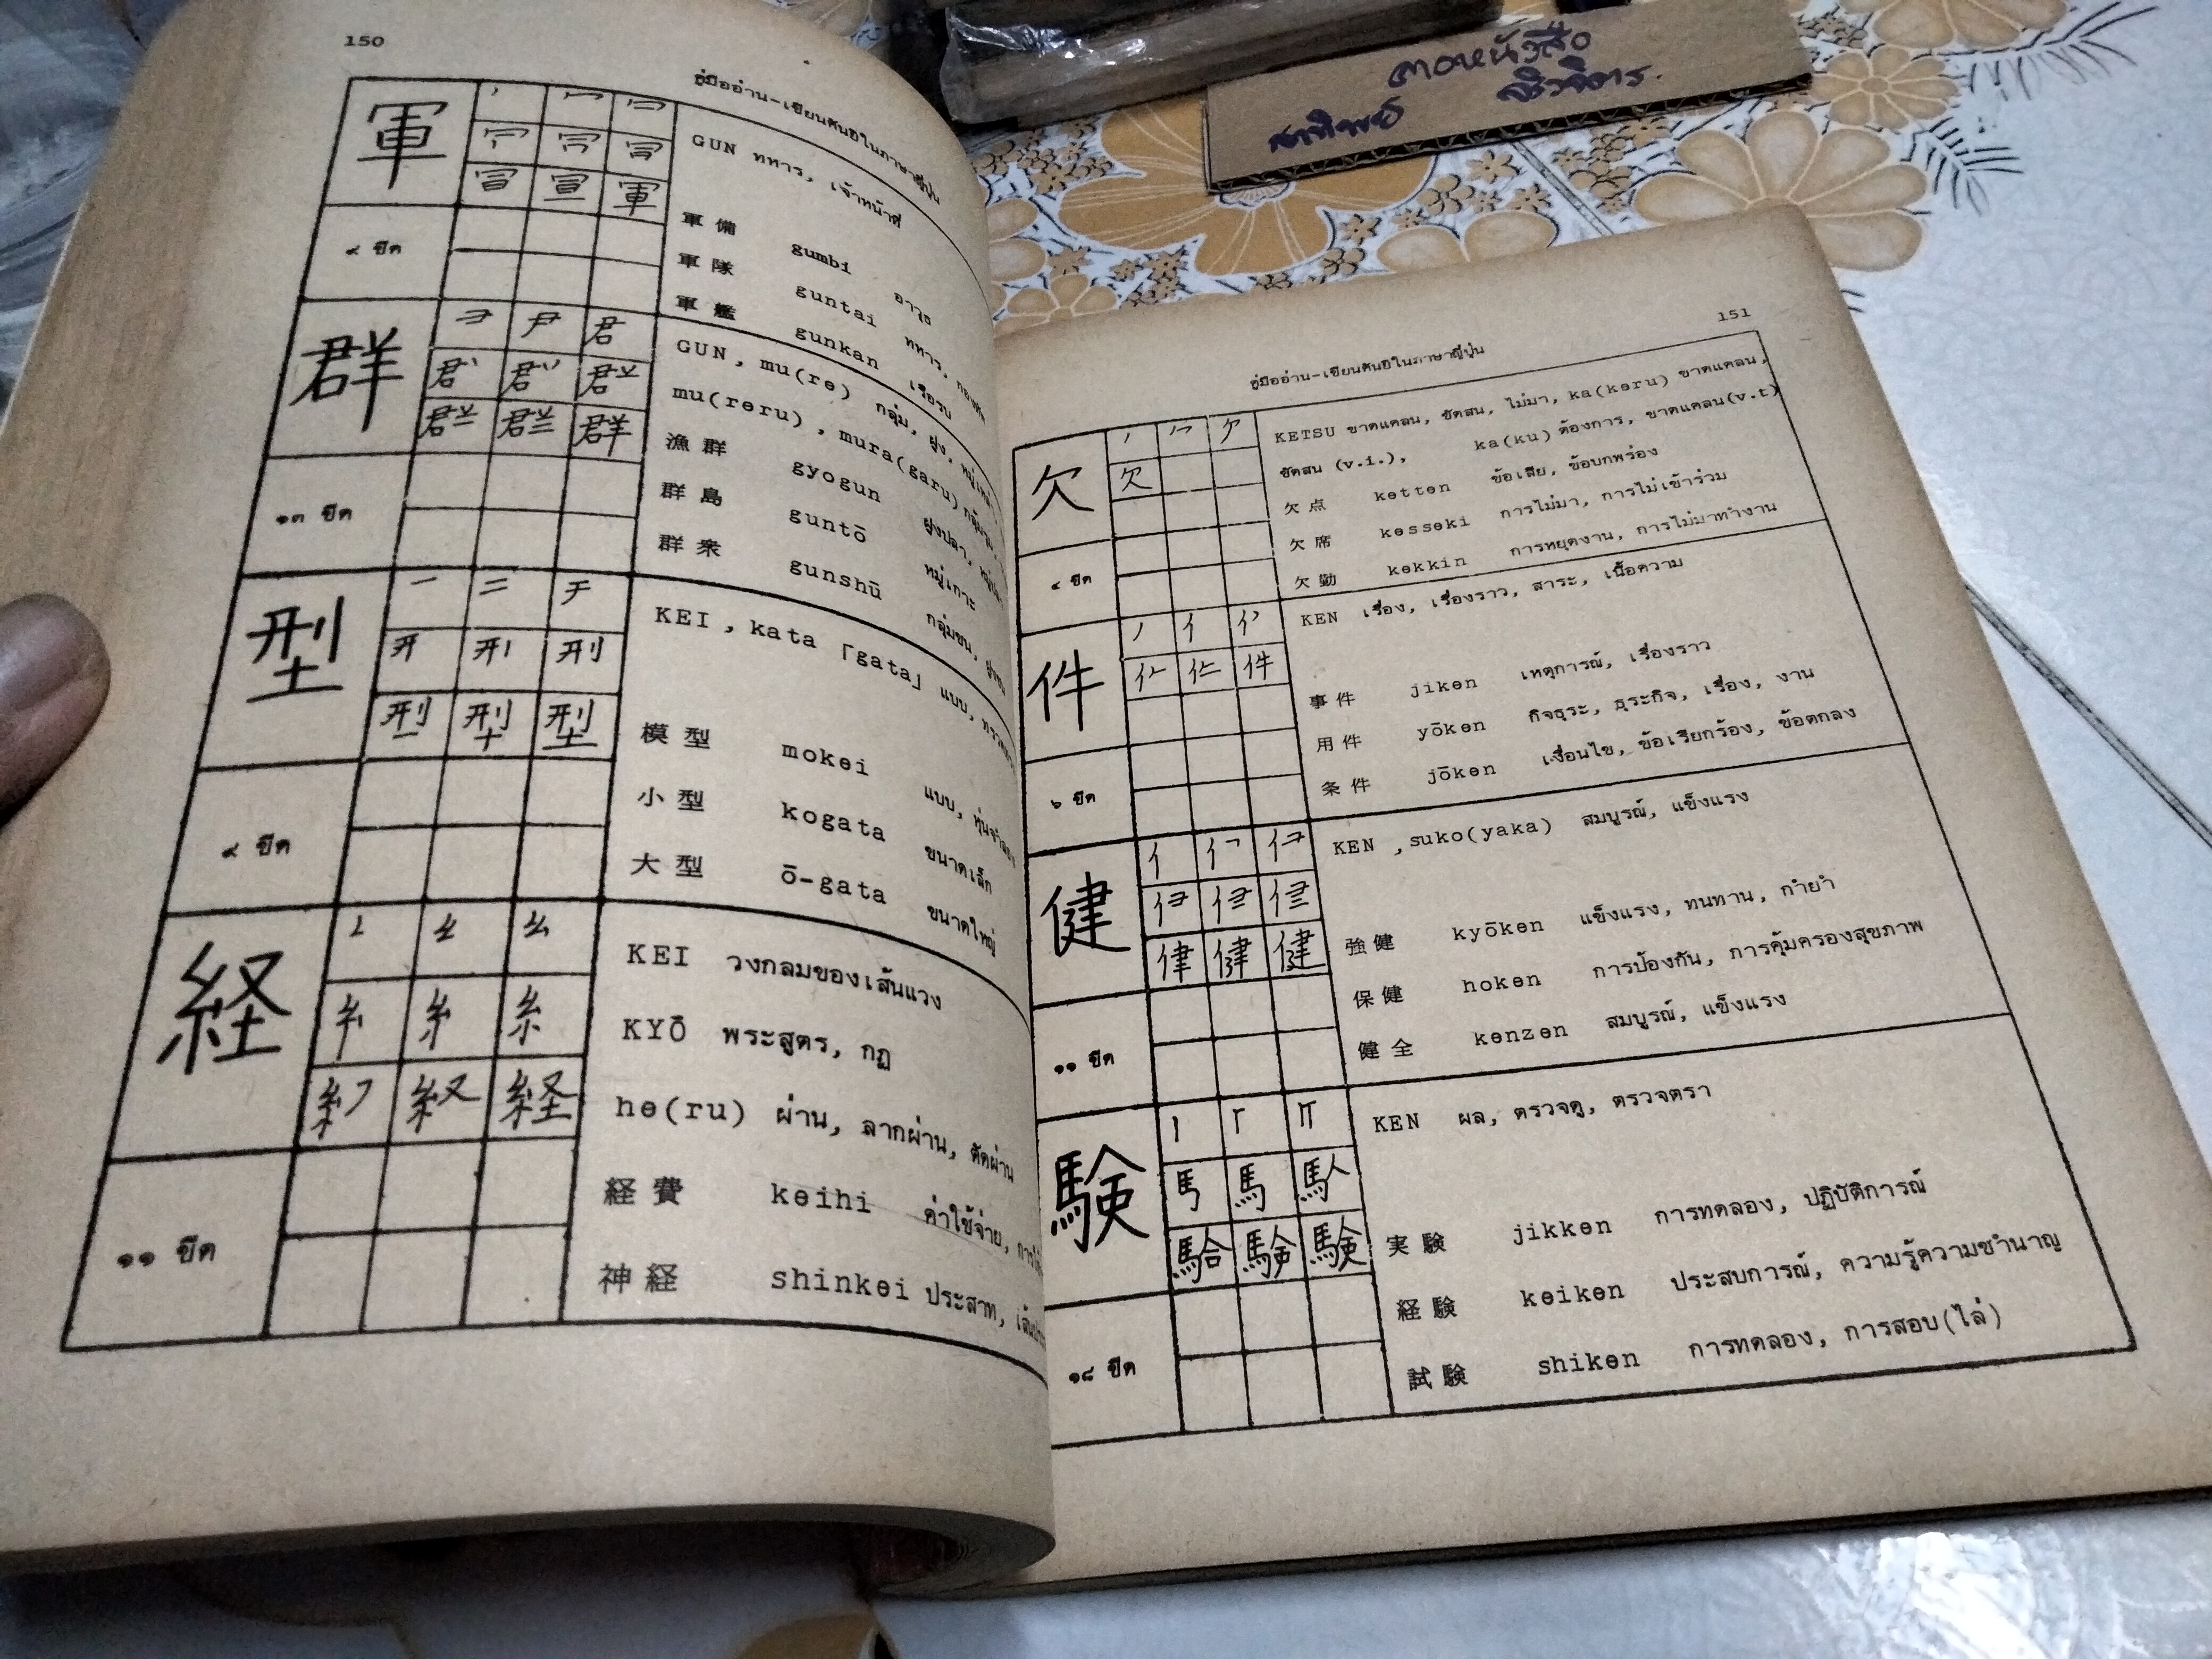 150
คู่มืออ่าน-เขียนคันจิในภาษาญี่ปุ่น
軍
GUN ทหาร, เจ้าหน้าที่
軍備 gumbi อาวุธ
軍隊 guntai ทหาร, กองทัพ
軍艦 gunkan เรือรบ
๙ ขีด
群
GUN, mu(re) กลุ่ม, ฝูง,
mu(reru), mura(garu)
漁群 gyogun ฝูงปลา,
群島 guntō หมู่เกาะ
群衆 gunshū กลุ่มชน,
๑๓ ขีด
型
KEI, kata 「gata」 แบบ,
模型 mokei แบบ, หุ่นจำลอง
小型 kogata ขนาดเล็ก
大型 ō-gata ขนาดใหญ่
๙ ขีด
経
KEI วงกลมของเส้นแวง
KYŌ พระสูตร, กฎ
he(ru) ผ่าน, ลากผ่าน, ตัดผ่าน
経費 keihi ค่าใช้จ่าย,
神経 shinkei ประสาท,
๑๑ ขีด
151
คู่มืออ่าน-เขียนคันจิในภาษาญี่ปุ่น
欠
KETSU ขาดแคลน, ขัดสน, ไม่มา, ka(keru) ขาดแคลน,
ขัดสน (v.i.), ka(ku) ต้องการ, ขาดแคลน(v.t)
欠点 ketten ข้อเสีย, ข้อบกพร่อง
欠席 kesseki การไม่มา, การไม่เข้าร่วม
欠勤 kekkin การหยุดงาน, การไม่มาทำงาน
๔ ขีด
件
KEN เรื่อง, เรื่องราว, สาระ, เนื้อความ
事件 jiken เหตุการณ์, เรื่องราว
用件 yōken กิจธุระ, ธุระกิจ, เรื่อง, งาน
条件 jōken เงื่อนไข, ข้อเรียกร้อง, ข้อตกลง
๖ ขีด
健
KEN ,suko(yaka) สมบูรณ์, แข็งแรง
強健 kyōken แข็งแรง, ทนทาน, กำยำ
保健 hoken การป้องกัน, การคุ้มครองสุขภาพ
健全 kenzen สมบูรณ์, แข็งแรง
๑๑ ขีด
験
KEN ผล, ตรวจดู, ตรวจตรา
実験 jikken การทดลอง, ปฏิบัติการณ์
経験 keiken ประสบการณ์, ความรู้ความชำนาญ
試験 shiken การทดลอง, การสอบ(ไล่)
๑๘ ขีด